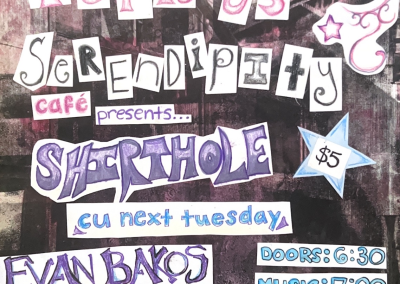 SERENDIPITY
café presents...
SHIRTHOLE
$5
cu next tuesday
EVAN BAKOS
DOORS: 6:30
MUSIC: 7:00